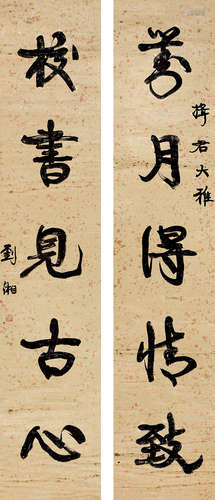 君大雅
月得情致
校書見古心
劉湘